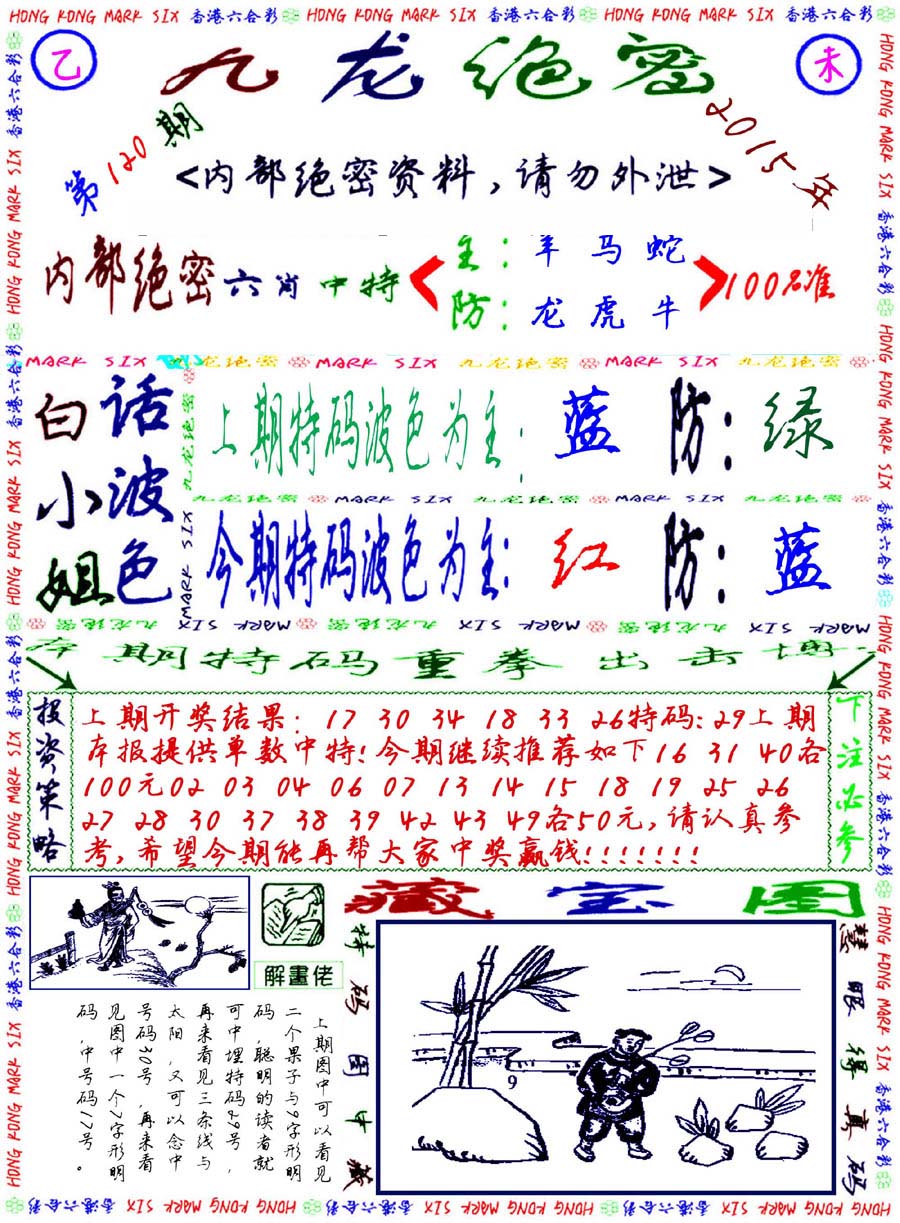 HONG KONG MARK SIX 香港六合彩 HONG KONG MARK SIX 香港六合彩 HONG KONG MARK SIX 香港六合彩
乙 九龙绝密 未
第120期
2015年
<内部绝密资料，请勿外泄>
内部绝密六肖中特
主：羊马蛇
防：龙虎牛
100%准
MARK SIX 九龙绝密 MARK SIX 九龙绝密 MARK SIX 九龙绝密
白话
小波
姐色
上期特码波色为主： 蓝 防：绿
九龙绝密 MARK SIX 九龙绝密 MARK SIX 九龙绝密
今期特码波色为主： 红 防：蓝
九龙绝密 MARK SIX 九龙绝密 MARK SIX 九龙绝密 MARK SIX
期特码重拳出击
投资策略
上期开奖结果：17 30 34 18 33 26特码：29上期
本报提供单数中特！今期继续推荐如下16 31 40各
100元02 03 04 06 07 13 14 15 18 19 25 26
27 28 30 37 38 39 42 43 49各50元，请认真参
考，希望今期能再帮大家中奖赢钱！！！！！！！
下注必参
藏宝图
解畫佬
上期图中可以看见
二个果子与9字形明
码，聪明的读者就
可中埋特码29号，
再来看见三条线与
太阳，又可以念中
号码30号，再来看
见图中一个7字形明
码，中号码17号。
特码图中藏
9
慧眼得真码
HONG KONG MARK SIX 香港六合彩 HONG KONG MARK SIX 香港六合彩 HONG KONG MARK SIX 香港六合彩